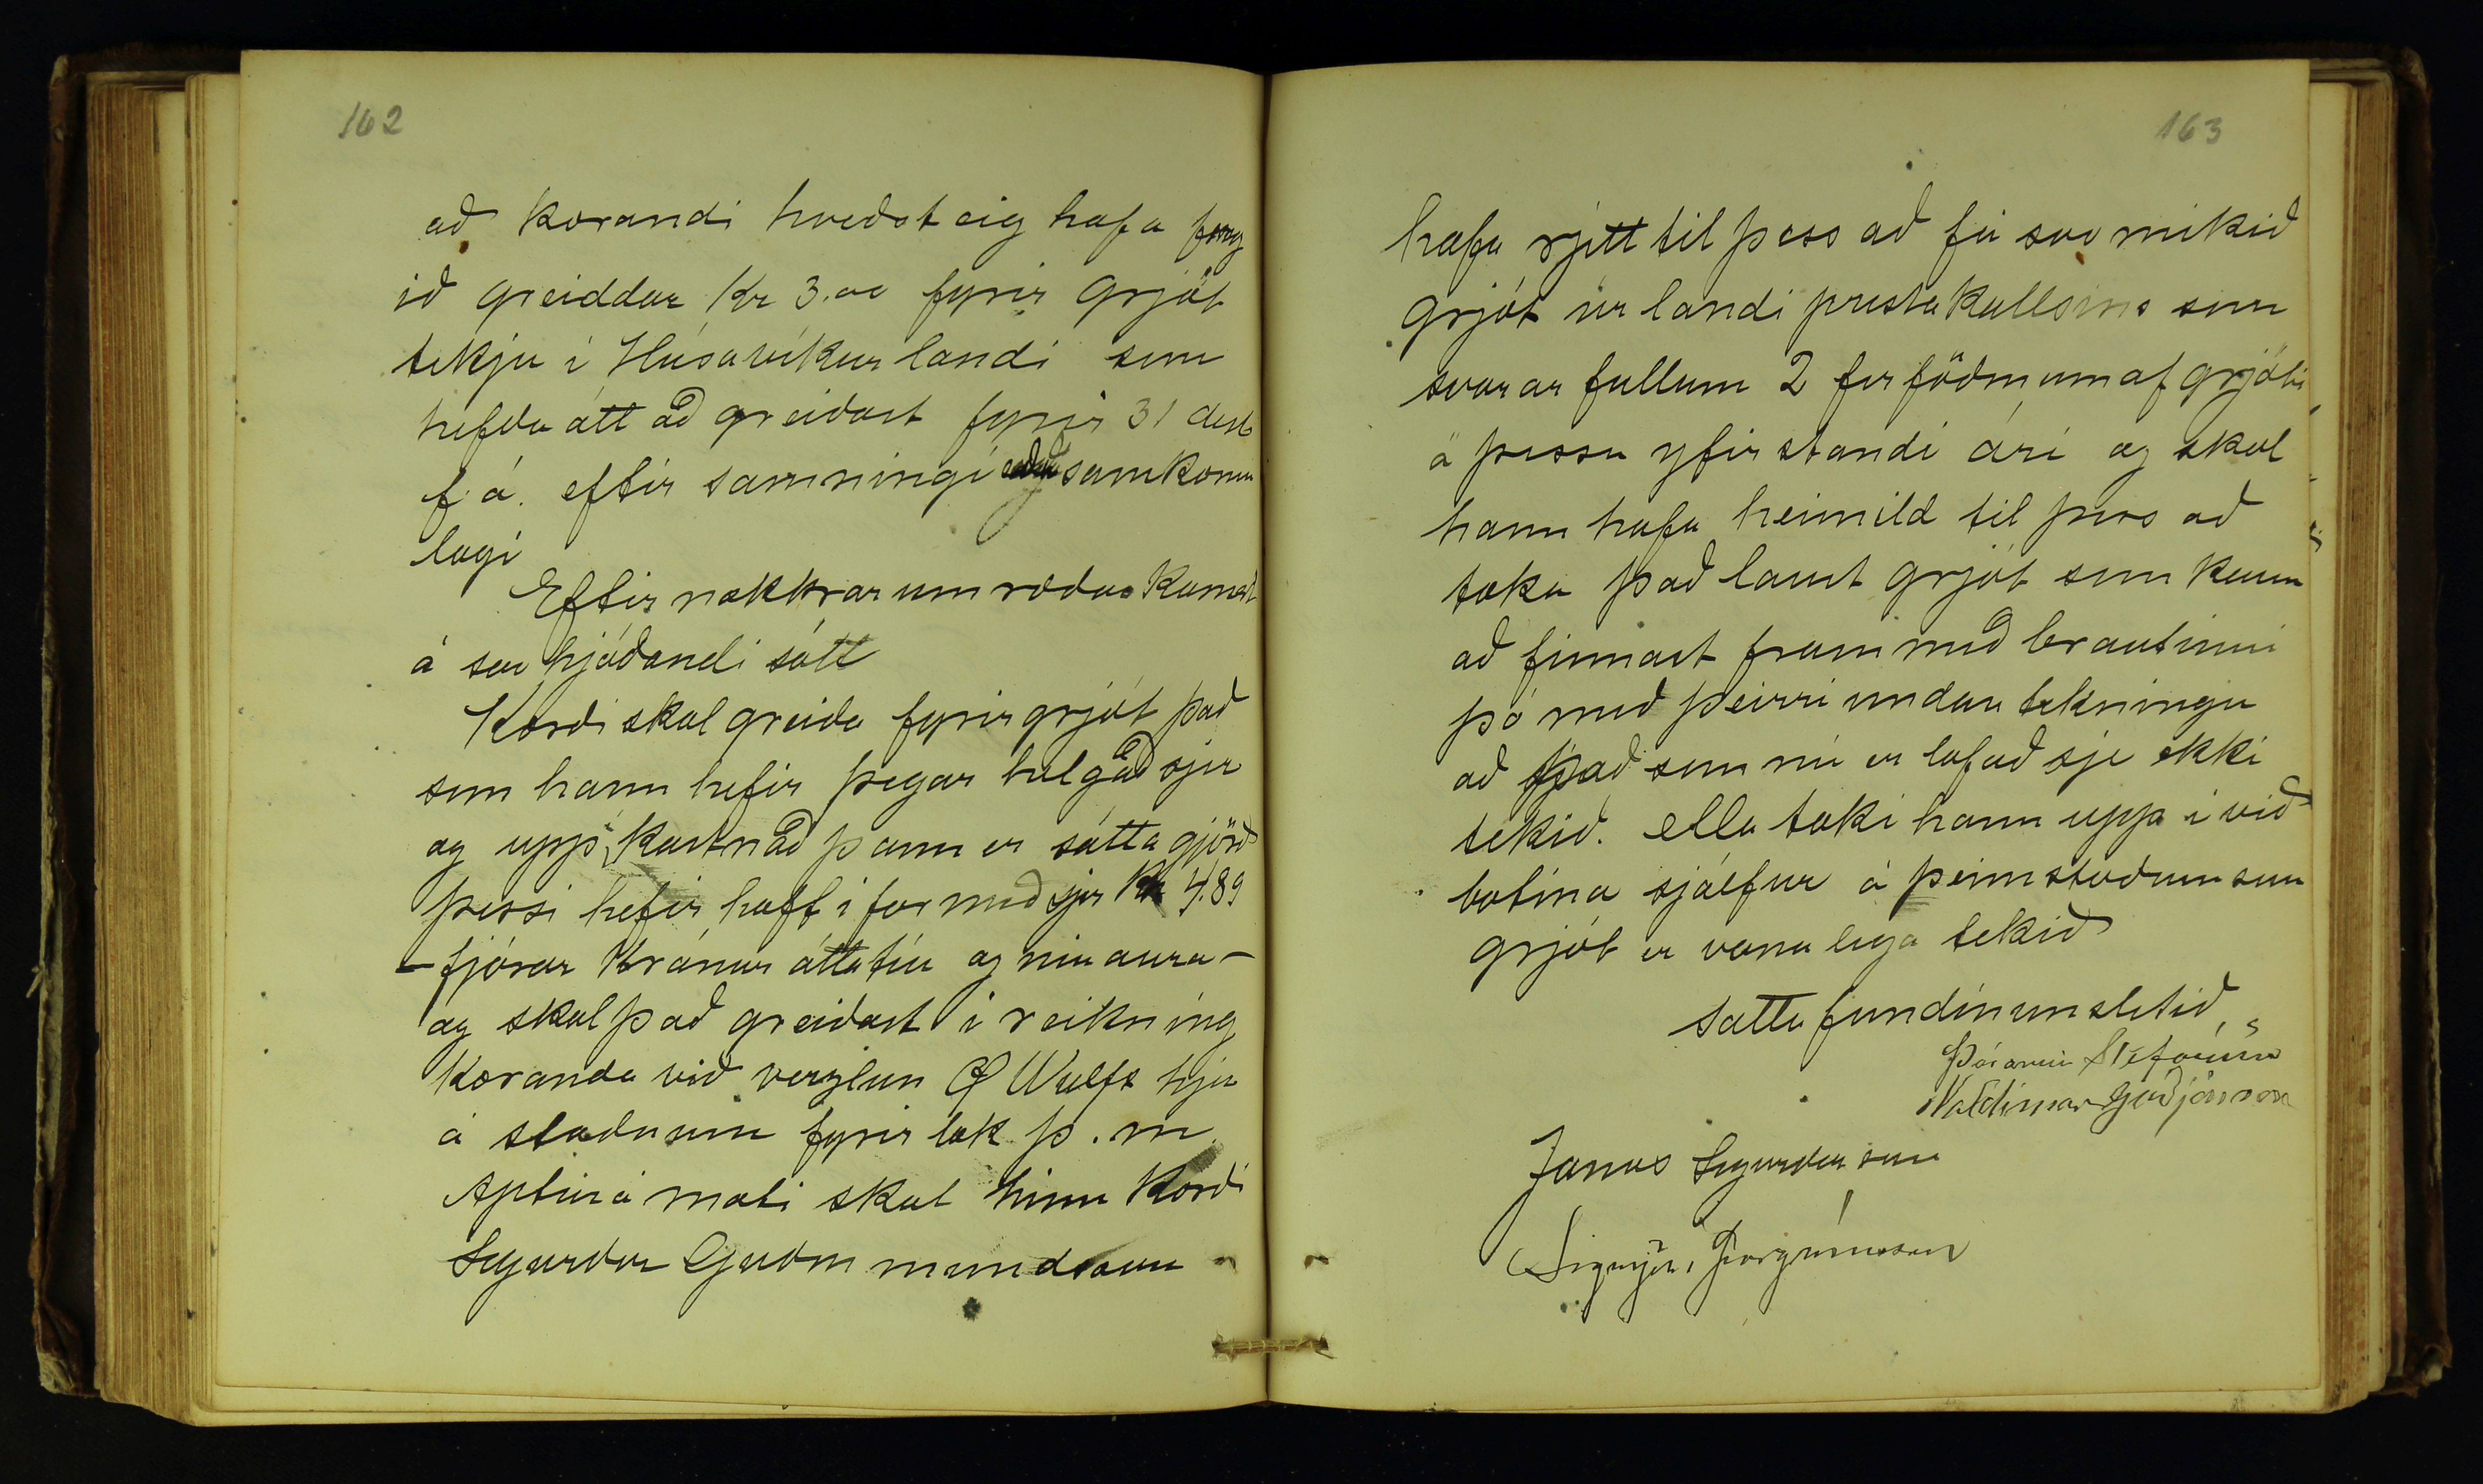 162
að kærandi kveðst eig hafa feng
ið greiddar Kr 3.00 fyrir grjót
tekju í Húsavíkurlandi sem
hefðu átt að greiðast fyrir 31 des
f. á. eftir samningi samkomu
lagi
Eftir nokkrar umræður komst
á svo hjóðandi sátt
Kærði skal greiða fyrir grjót það
sem hann hefir þegar helgað sjer
og upp í kostnað þann er sátta gjörð
þessi hefir haft i för með sjer Kr 4.89
– fjórar Krónur áttatíu og níu aura –
og skal það greiðast i reikning
Kæranda við verzlun Ö Wulfs hjer
á staðnum fyrir lok þ. m.
Aptur á moti skal hinn Kærði
Sigurður Guðmmundsson
163
hafa rjett til þess að fá svo mikið
grjót úr landi prestakallsins sem
svarar fullum 2 ferföðmum af grjóti
á þessu yfirstandi ári og skal
hann hafa heimild til þess að
taka það laust grjót sem kann
að finnast fram með brautinni
þó með þeirri undantekningu
að það sem nú er lofað sje ekki
tekið. ella taki hann upp í við
botina sjálfur á þeim stöðum sem
grjót er vanalega tekið
Sáttafundinum slitið
Þórarinn Stefánsson
Valdimar Guðjónsson
Jónas Sigurðsson
Sigurjón Þorgrímsson